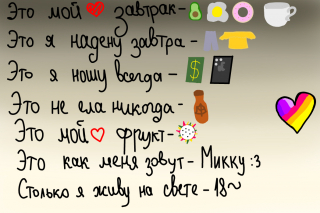 Это мой ❤ завтрак -
Это я надену завтра -
Это я ношу всегда -
Это не ела никогда -
Это мой ♡ фрукт -
Это как меня зовут - Микку :3
Столько я живу на свете - 18~